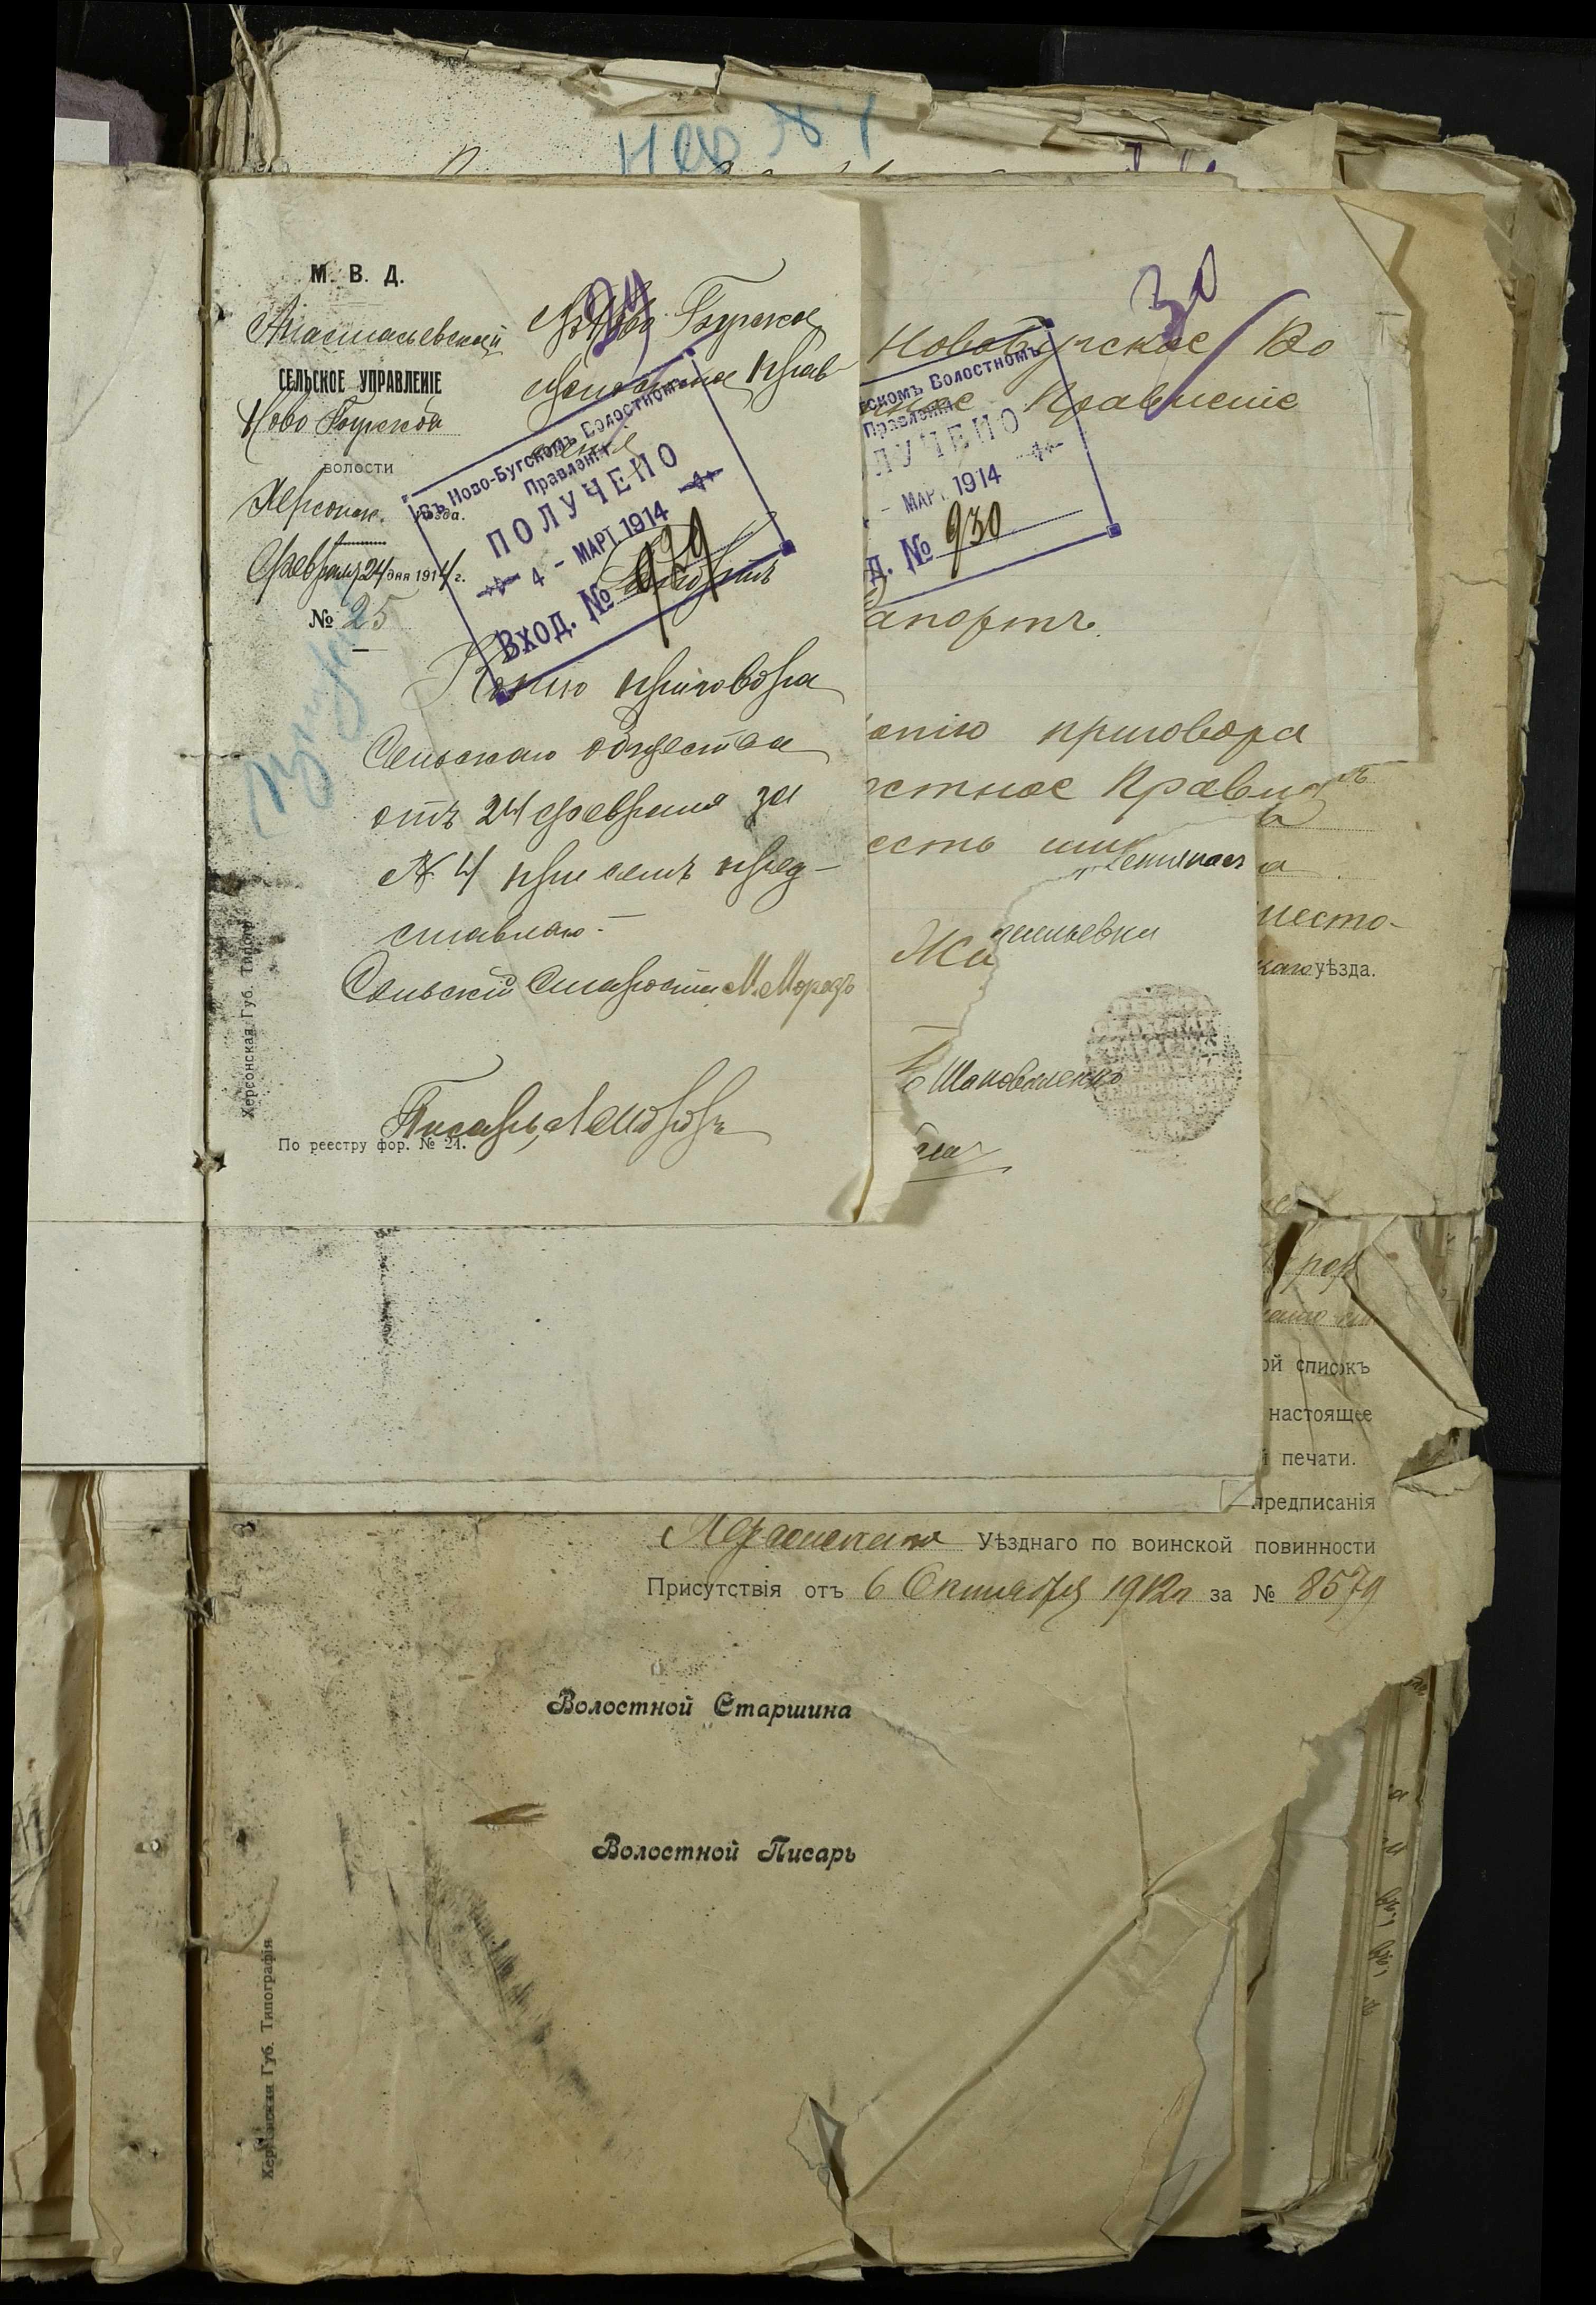 М. В. Д.
Анастасьевской
СЕЛЬСКОЕ УПРАВЛЕНІЕ
Ново Бугской
волости
Херсонск. уѣзда.
Февраля 24 дня 1914 г.
№ 25
29
Въ Ново Бугское
Волостное Прав-
леніе
Въ Ново-Бугскомъ Волостномъ
Правленіи
ПОЛУЧЕНО
4 - МАР. 1914
Вход. № 929
Рапортъ
Копію приговора
Сельскаго общества
отъ 24 февраля за
№ 4 при семъ пред-
ставляю.
Сельскій Староста М. Морозъ
Писарь
Херсонская Губ. Типогр
По реестру фор. № 24.
30
Новобугское Во
ное Правленіе
скомъ Волостномъ
Правленіи
ЛУЧЕНО
- МАР. 1914
д. № 930
апортъ.
опію приговора
остное Правле
есть
Шаповаленко
место-
уѣзда.
ой списокъ
настоящее
й печати.
предписанія
Херсонскаго Уѣзднаго по воинской повинности
Присутствія отъ 6 Сентября 1912 г. за № 8579
Волостной Старшина
Волостной Писарь
Херсонская Губ. Типографія